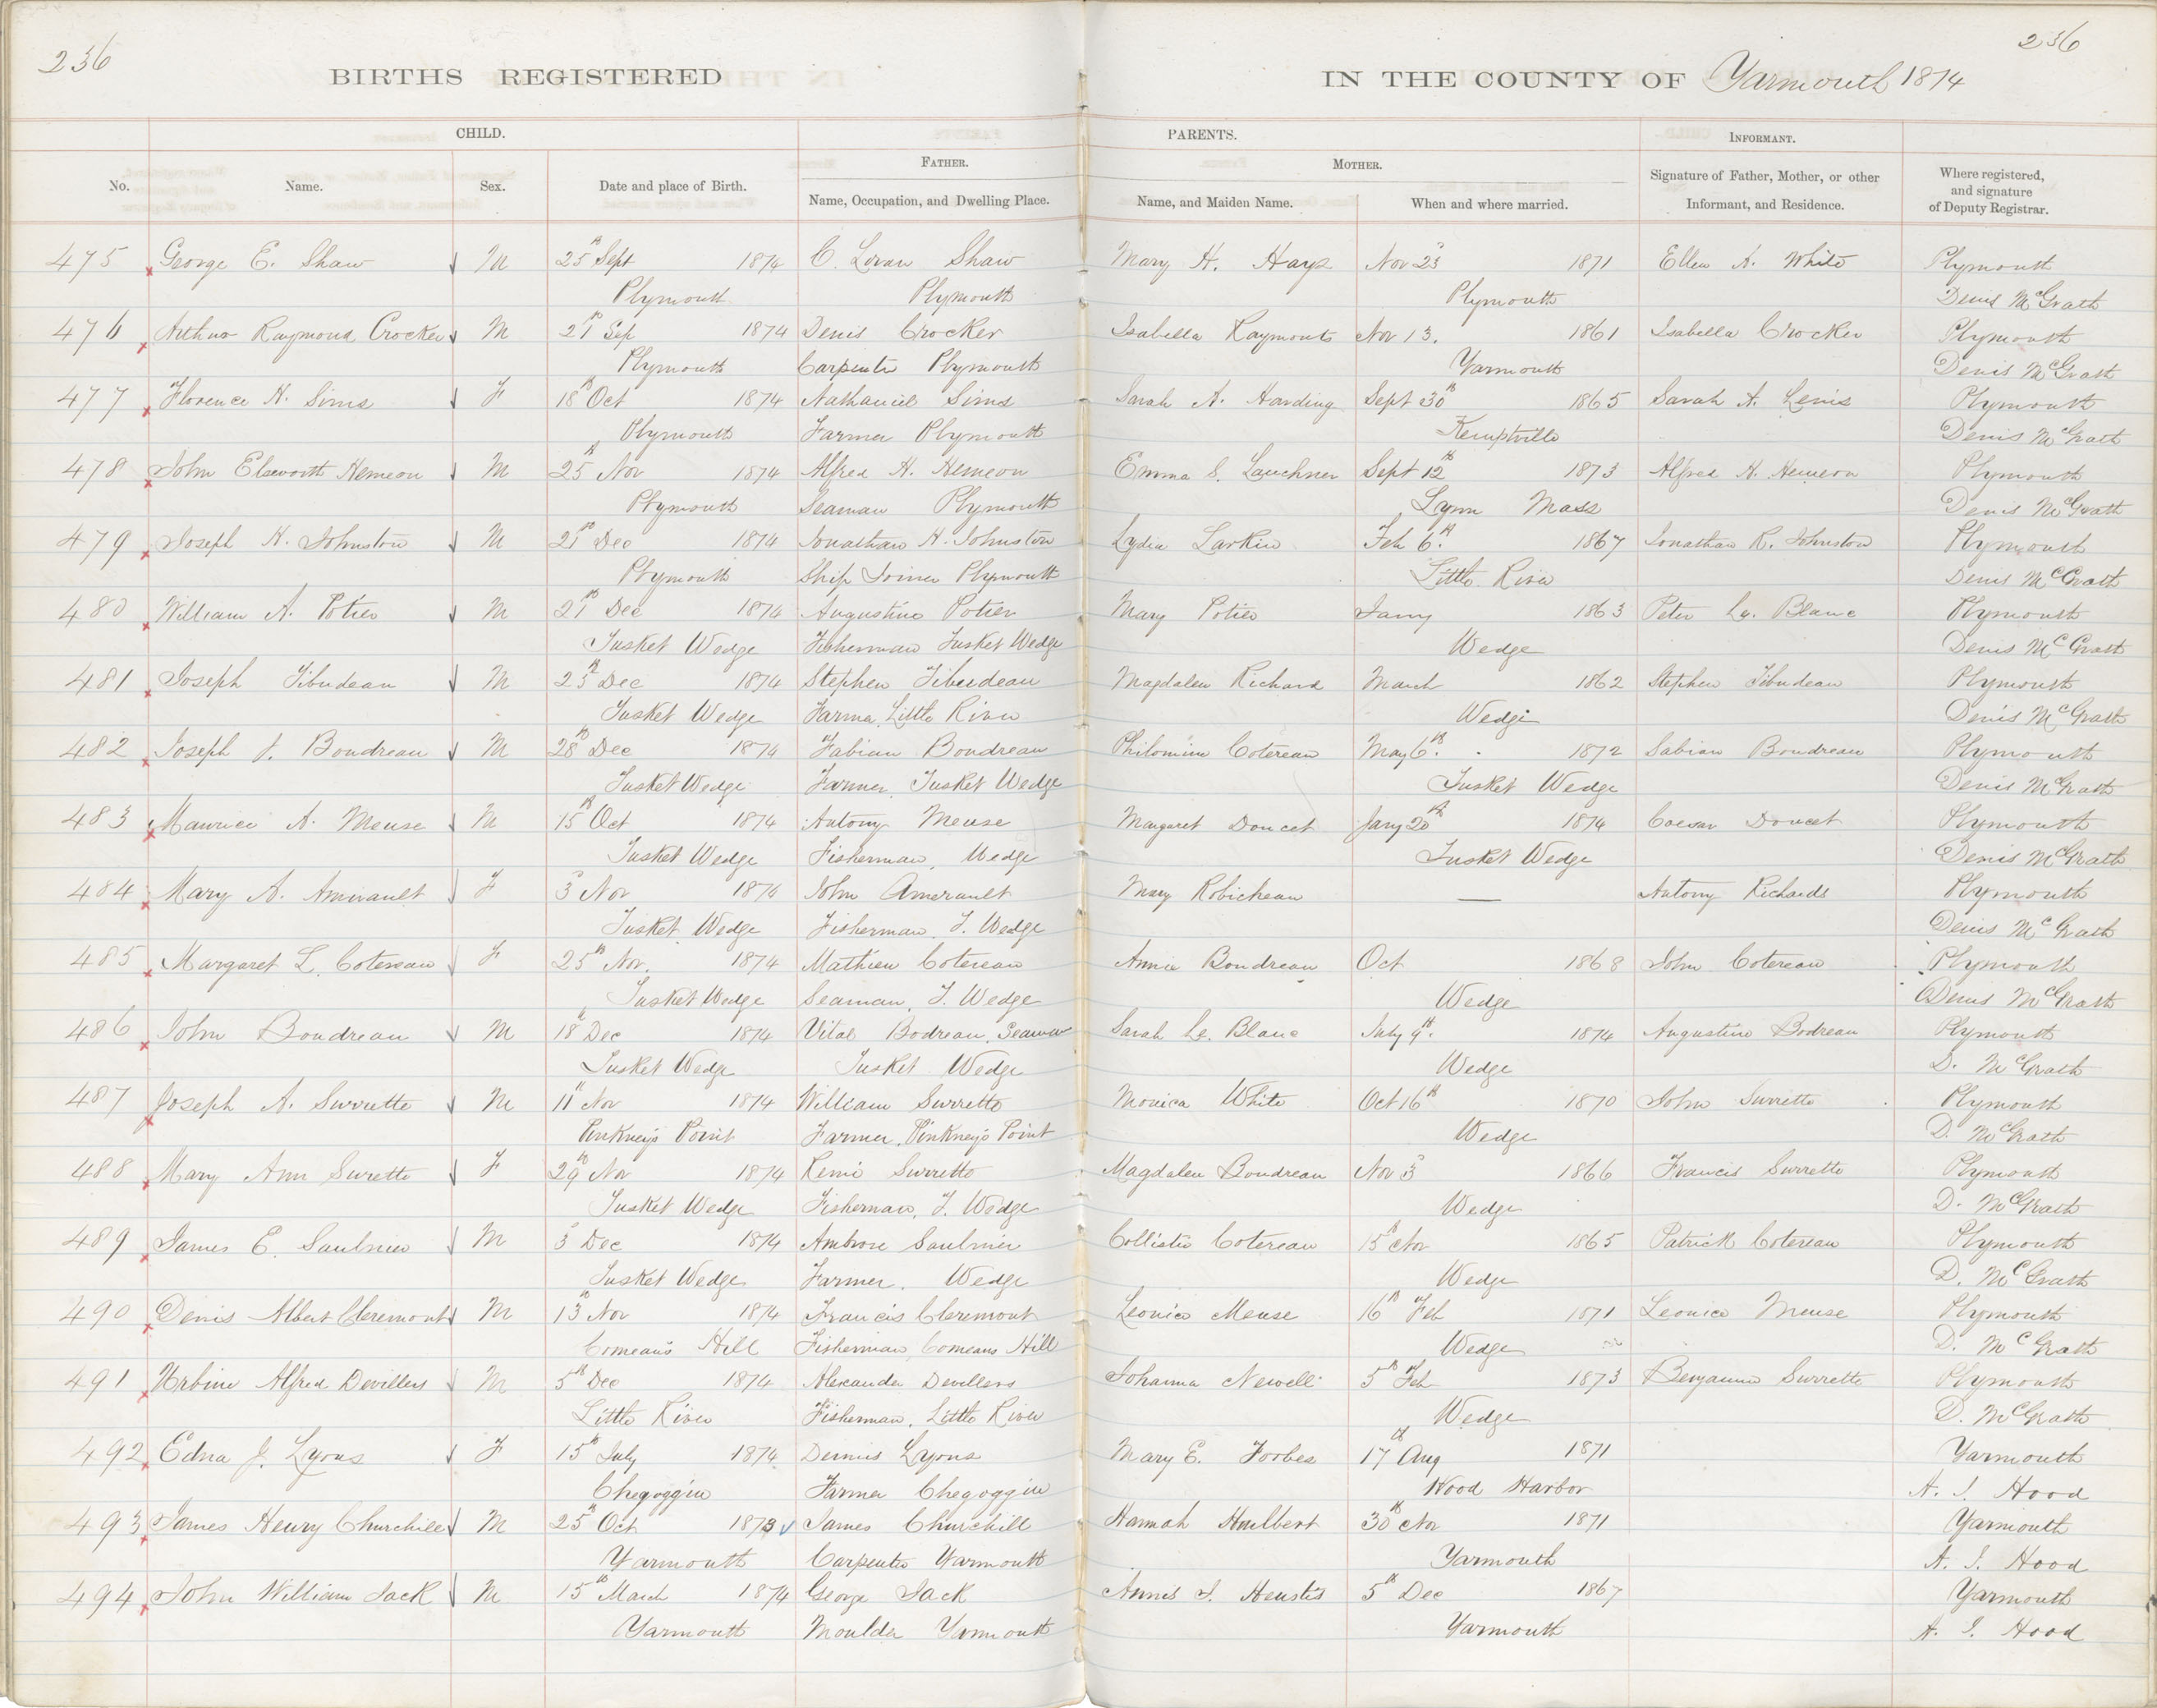 236
236
BIRTHS REGISTERED
IN THE COUNTY OF Yarmouth 1874
CHILD.
PARENTS.
INFORMANT.
FATHER.
MOTHER.
No.
Name.
Sex.
Date and place of Birth.
Name, Occupation, and Dwelling Place.
Name, and Maiden Name.
When and where married.
Signature of Father, Mother, or other Informant, and Residence.
Where registered, and signature of Deputy Registrar.
475 George E. Shaw M 25th Sept 1874 C. Loran Shaw Mary H. Hays Nov 23 1871 Ellen A. White Plymouth
Plymouth Plymouth Plymouth Denis McGrath
476 Arthur Raymond Crocker M 21th Sep 1874 Denis Crocker Isabella Raymonts Nov 13. 1861 Isabella Crocker Plymouth
Plymouth Carpenter Plymouth Yarmouth Denis McGrath
477 Florence H. Sims F 18th Oct 1874 Nathaniel Sims Sarah A. Harding Sept 30th 1865 Sarah A. Plymouth
Plymouth Farmer Plymouth Kemptville Denis McGrath
478 John Elsworth Hemeon M 25th Nov 1874 Alfred H. Hemeon Emma S. Lauchner Sept 12th 1873 Alfred H. Hemeon Plymouth
Plymouth Seaman Plymouth Lynn Mass Denis McGrath
479 Joseph H. Johnston M 21th Dec 1874 Jonathan H. Johnston Lydia Larkin Feb 6th. 1867 Jonathan R. Johnston Plymouth
Plymouth Ship Joiner Plymouth Little River Denis McGrath
480 William A. Potier M 21th Dec 1874 Augustine Potier Mary Potier Jany 1863 Peter Le. Blanc Plymouth
Tusket Wedge Fisherman Tusket Wedge Wedge Denis McGrath
481 Joseph Tibudeau M 25th Dec 1874 Stephen Tibudeau Magdalen Richard March 1862 Stephen Tibudeau Plymouth
Tusket Wedge Farmer, Little River Wedge Denis McGrath
482 Joseph J. Boudreau M 28th Dec 1874 Fabian Boudreau Philomine Cotereau May 6th. 1872 Sabian Boudreau Plymouth
Tusket Wedge Farmer, Tusket Wedge Tusket Wedge Denis McGrath
483 Maurice A. Meuse M 15th Oct 1874 Antony Meuse Margaret Doucet Jany 20th 1874 Coesar Doucet Plymouth
Tusket Wedge Fisherman, Wedge Tusket Wedge Denis McGrath
484 Mary A. Amirault F 3 Nov 1874 John Amerault Mary Robicheau — Antony Richards Plymouth
Tusket Wedge Fisherman, T. Wedge Denis McGrath
485 Margaret L. Cotereau F 25th Nov. 1874 Mathieu Cotereau Annie Boudreau Oct 1868 John Cotereau Plymouth
Tusket Wedge Seaman, T. Wedge Wedge Denis McGrath
486 John Boudreau M 18th Dec 1874 Vital Bodreau, Seaman Sarah Le. Blanc July 9th. 1874 Augustine Bodreau Plymouth
Tusket Wedge Tusket Wedge Wedge D. McGrath
487 Joseph A. Surrette M 11th Nov 1874 William Surrette Monica White Oct 16th 1870 John Surrette Plymouth
Pinkney's Point Farmer, Pinkney's Point Wedge D. McGrath
488 Mary Ann Surette F 29th Nov 1874 Remi Surrette Magdalen Boudreau Nov 3 1866 Francis Surrette Plymouth
Tusket Wedge Fisherman, T. Wedge Wedge D. McGrath
489 James E. Saulnier M 3 Dec 1874 Ambrose Saulnier Collistie Cotereau 15th Nov 1865 Patrick Cotereau Plymouth
Tusket Wedge Farmer. Wedge Wedge D. McGrath
490 Denis Albert Cleremont M 13th Nov 1874 Francis Cleremont Leonice Meuse 16th Feb 1871 Leonice Meuse Plymouth
Comeau's Hill Fisherman, Comeaus Hill Wedge D. McGrath
491 Urbine Alfred Devillers M 5th Dec 1874 Alexander Devillers Johanna Newell 5th Feb 1873 Benjamin Surrette Plymouth
Little River Fisherman, Little River Wedge D. McGrath
492 Edna J. Lyons F 15th July 1874 Dennis Lyons Mary E. Forbes 17th Aug 1871 Yarmouth
Chegoggin Farmer Chegoggin Wood Harbor A. J. Hood
493 James Henry Churchill M 25th Oct 1873 James Churchill Hannah Hurlbert 30th Nov 1871 Yarmouth
Yarmouth Carpenter Yarmouth Yarmouth A. J. Hood
494 John William Jack M 15th March 1874 George Jack Annis J. Heustis 5th Dec 1867 Yarmouth
Yarmouth Moulder Yarmouth Yarmouth A. J. Hood